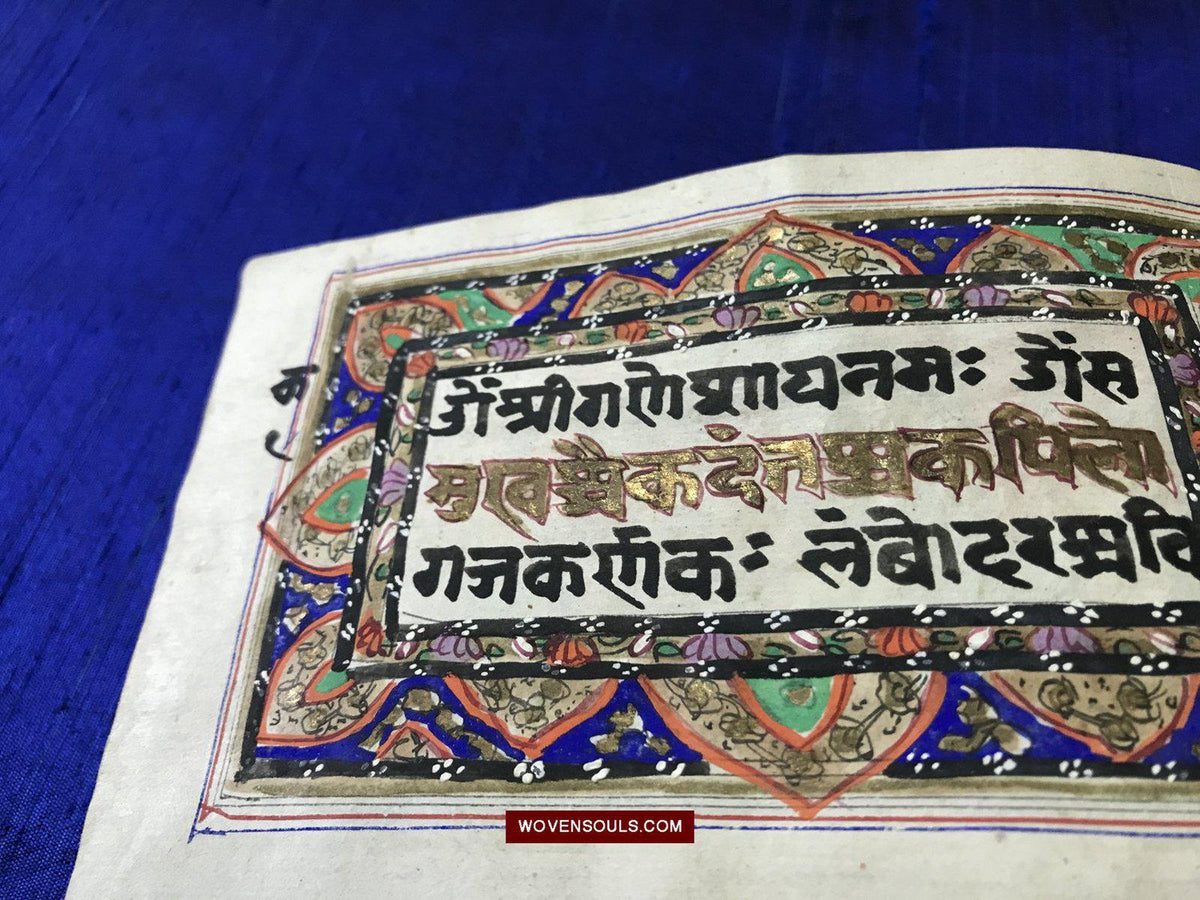 ओंश्रीगणेशायनमः ओंस
मुखश्चैकदंतश्चकपिलो
गजकर्णकः लंबोदरश्चवि
WOVENSOULS.COM